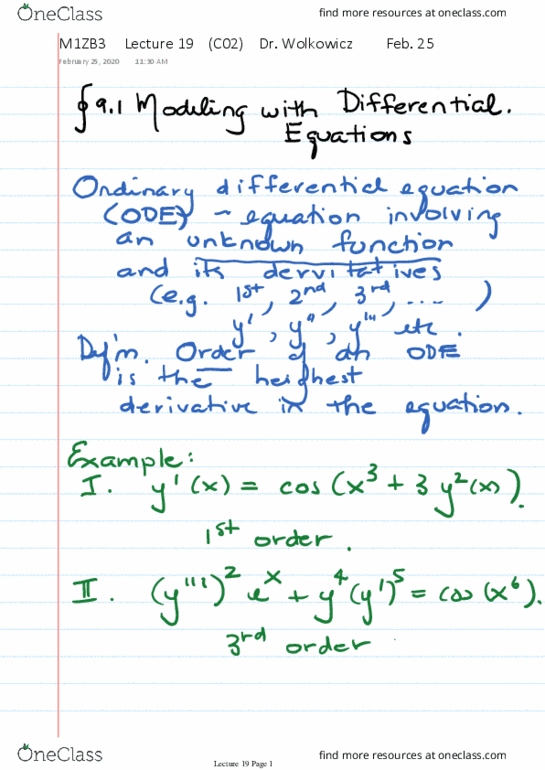 OneClass find more resources at oneclass.com
M1ZB3 Lecture 19 (C02) Dr. Wolkowicz Feb. 25
February 25, 2020 11:30 AM
§ 9.1 Modeling with Differential.
Equations
Ordinary differential equation
(ODE) - equation involving
an unknown function
and its dervitatives
(e.g. 1st, 2nd, 3rd, .... )
y', y", y''' etc.
Def'n. Order of an ODE
is the heighest
derivative in the equation.
Example:
I. y'(x) = cos(x³ + 3y²(x)).
1st order.
II. (y''')² eˣ + y⁴(y')⁵ = cos(x⁶).
3rd order
OneClass find more resources at oneclass.com
Lecture 19 Page 1